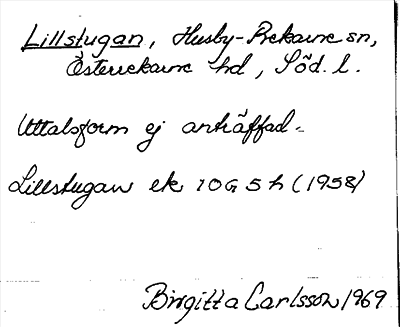 Lillstugan, Husby-Rekarne sn,
Österrekarne hd, Söd. l.
Uttalsform ej anträffad.
Lillstugan ek 10G 5h (1958)
Birgitta Carlsson 1969